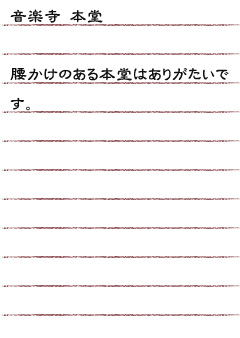 音楽寺 本堂
腰かけのある本堂はありがたいで
す。